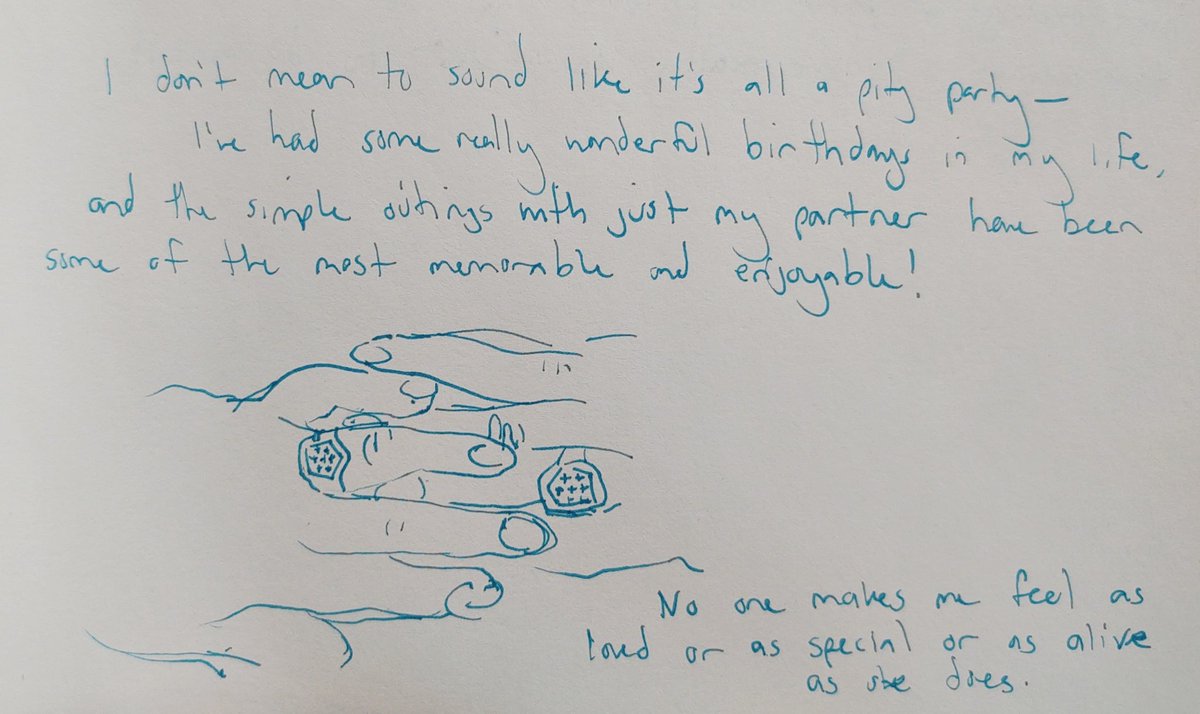 I don't mean to sound like it's all a pity party—
I've had some really wonderful birthdays in my life,
and the simple outings with just my partner have been
some of the most memorable and enjoyable!
No one makes me feel as
loved or as special or as alive
as she does.